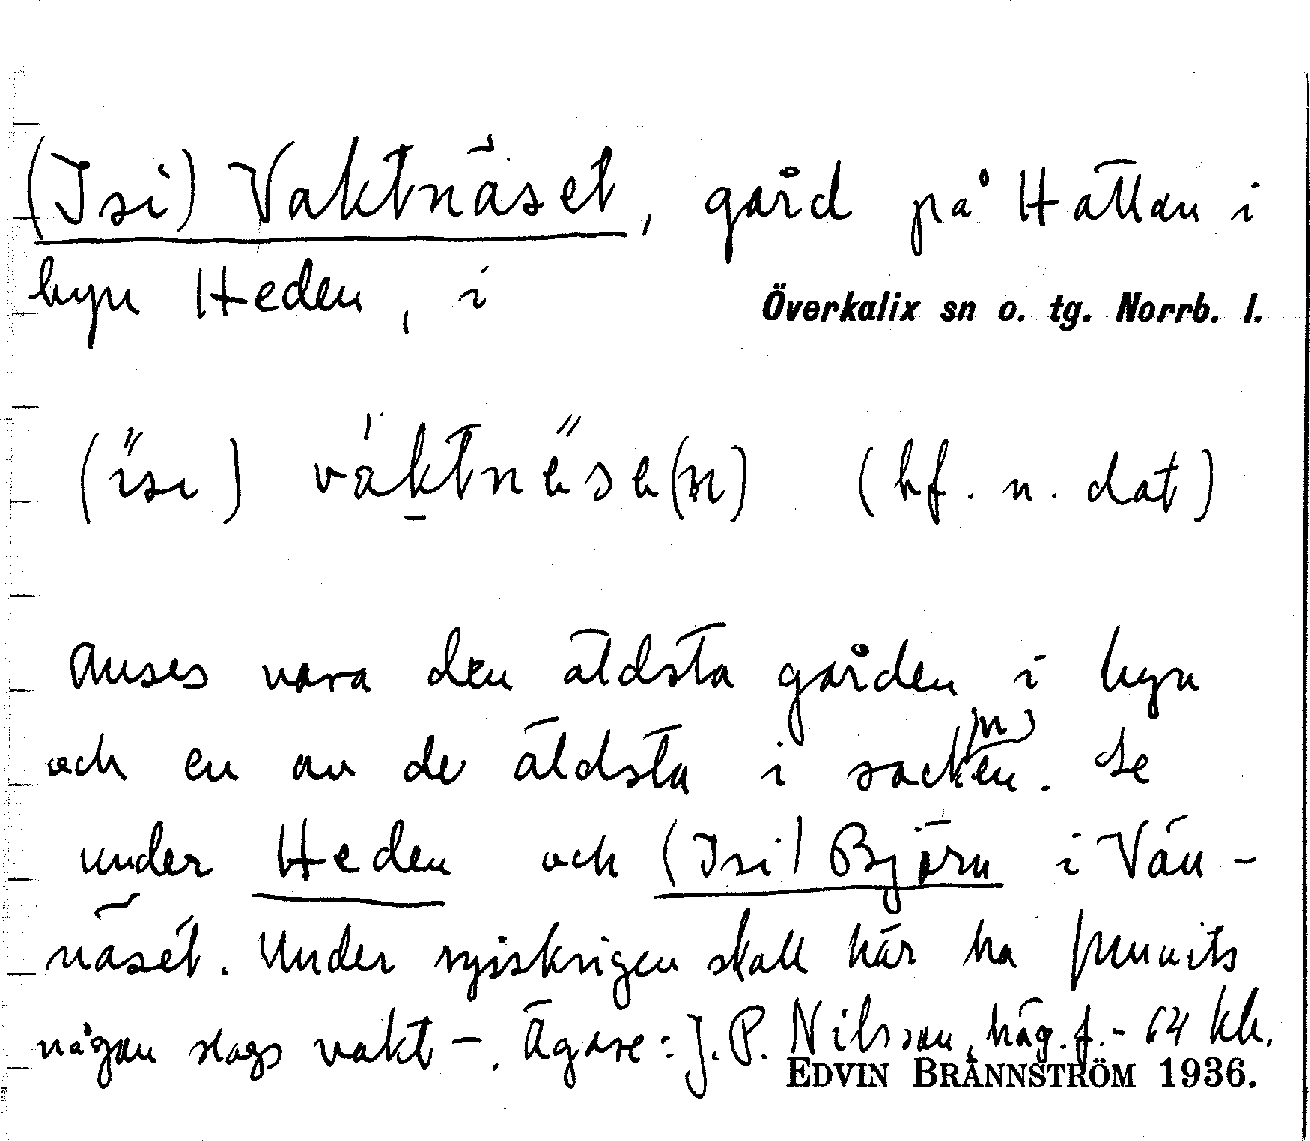 (Isi) Vaktnäset, gård på Hällan i
byn Heden, i Överkalix sn o. tg. Norrb. l.
(bf. n. dat)
Anses vara den äldsta gården i byn
och en av de äldsta i socknen. Se
under Heden och (Isi) Björn i Vän-
näset. Under ryskrigen skall här ha funnits
någon slags vakt –. Ägare: J. P. Nilsson, häg. f. - 64
EDVIN BRÄNNSTRÖM 1936.